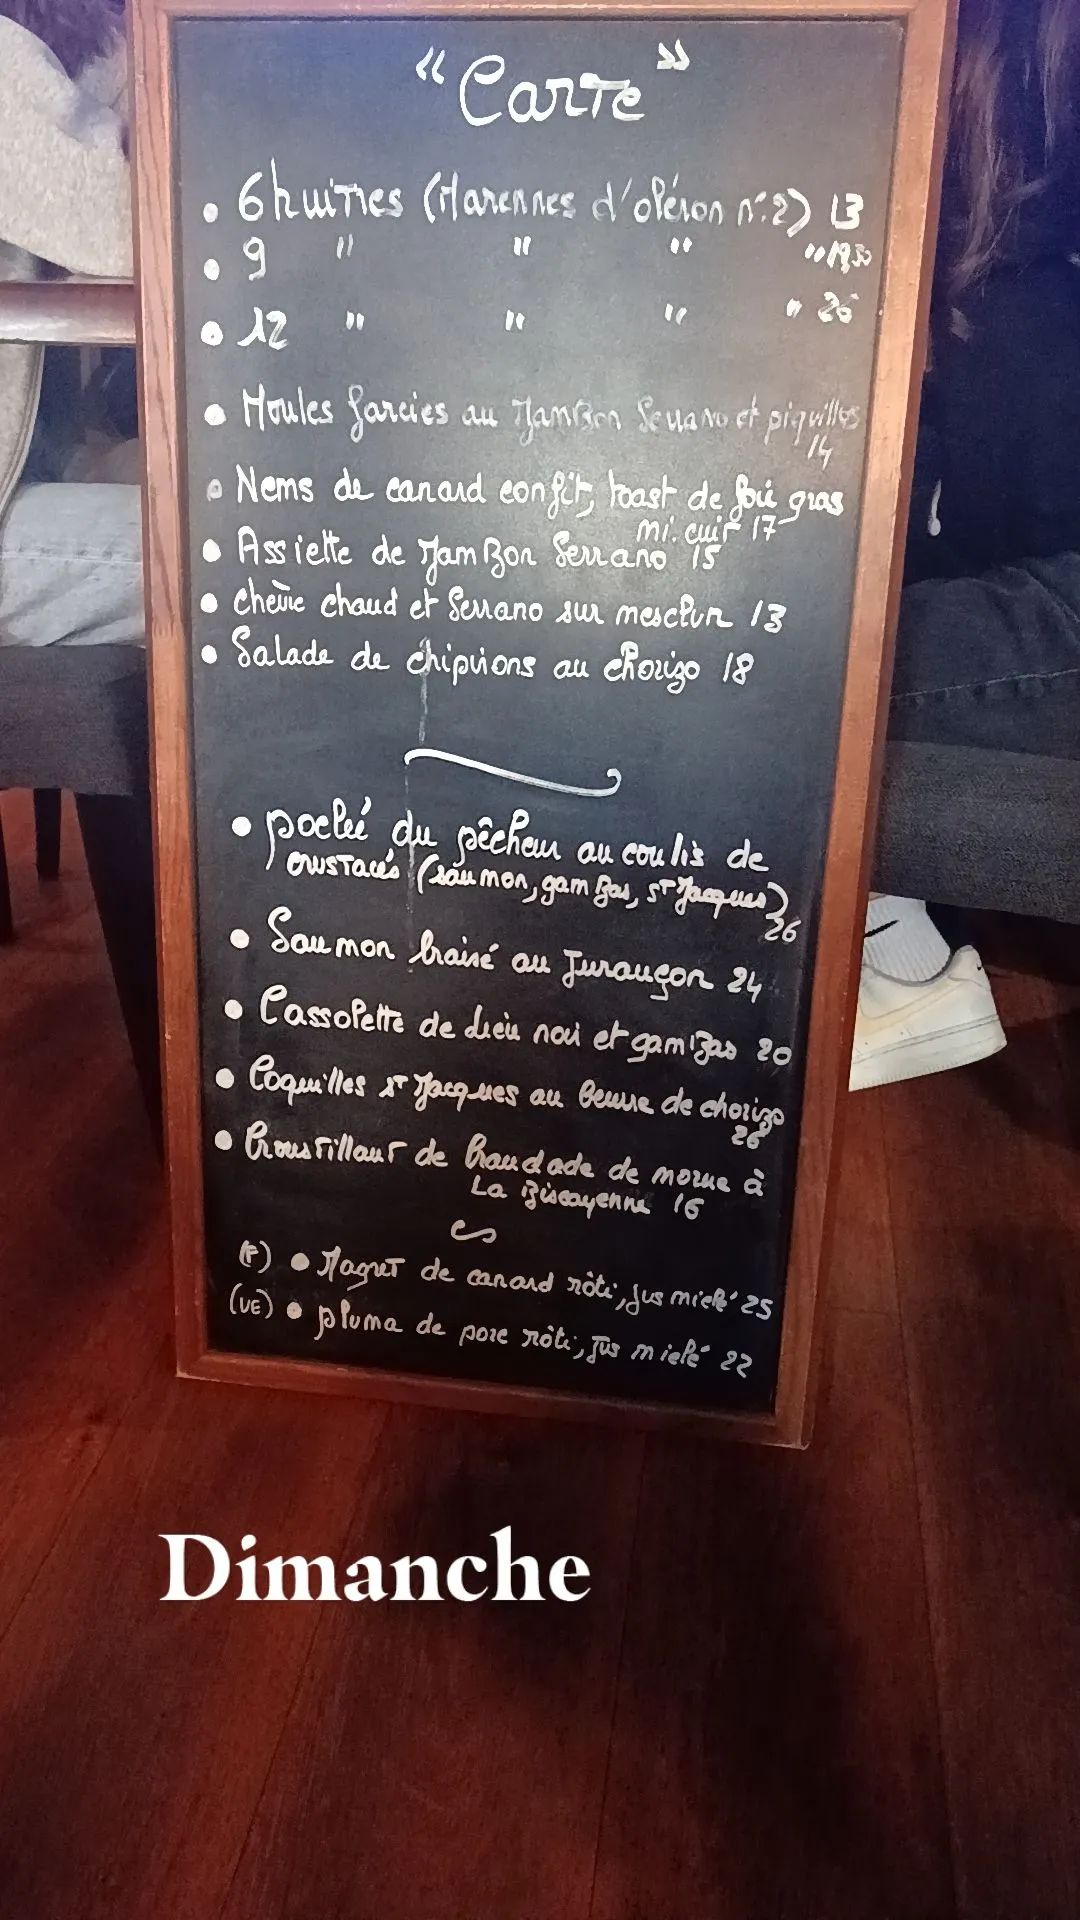 "Carte"
• 6 huitres (Marennes d'oléron n°2) 13
• 9 " " " " 19,50
• 12 " " " " 26
• Moules farcies au Jambon Serrano et piquillos
14
• Nems de canard confit, toast de foie gras
mi. cuit 17
• Assiette de Jambon Serrano 15
• chèvre chaud et Serrano sur mesclun 13
• Salade de chipirons au chorizo 18
• poelée du pêcheur au coulis de
crustacés (saumon, gambas, st Jacques)
26
• Saumon braisé au Jurançon 24
• Cassolette de lieu noir et gambas 20
• Coquilles st Jacques au beurre de chorizo
26
• Croustillant de brandade de morue à
La Biscayenne 16
(F) • Magret de canard rôti, jus mielé 25
(UE) • pluma de porc rôti, jus mielé 22
Dimanche